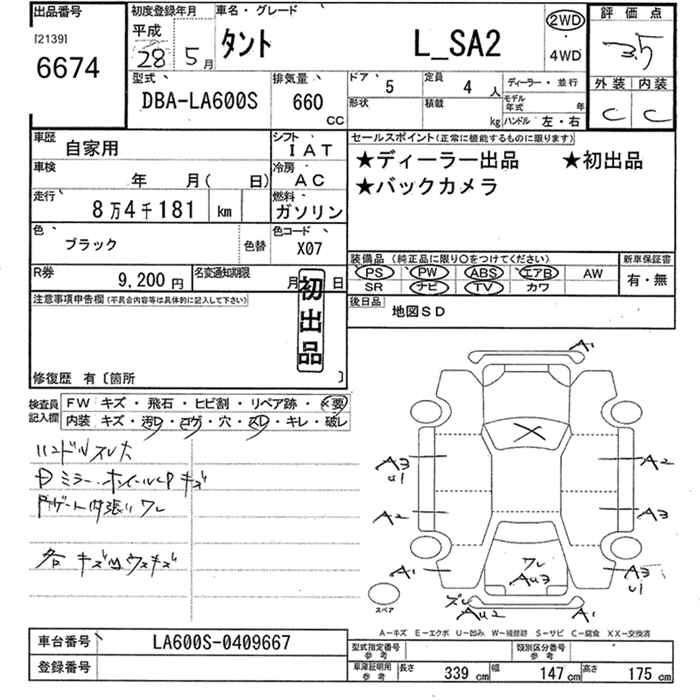 出品番号
[2139]
6674
初度登録年月
平成 28年 5月
車名・グレード
タント L_SA2
2WD
・
4WD
評価点
3.5
外装 内装
C C
型式
DBA-LA600S
排気量
660 CC
ドア 5
形状
定員 4 人
積載 kg
ディーラー・並行
モデル年式 年
ハンドル 左・右
車歴 自家用
シフト IAT
車検 年 月( 日)
冷房 AC
走行 8万4千181 km
燃料 ガソリン
色 ブラック 色替
色コード X07
R券 9,200 円
名変通知期限 月 日
セールスポイント(正常に機能するものに限ります)
★ディーラー出品 ★初出品
★バックカメラ
装備品(純正品に限り○をつけてください)
PS PW ABS エアB AW
SR ナビ TV カワ
新車保証書
有・無
後日品 地図SD
注意事項申告欄(不具合内容等は具体的に記入して下さい)
初出品
修復歴 有〔箇所 〕
検査員記入欄
FW キズ・飛石・ヒビ割・リペア跡・×要
内装 キズ・汚レ・コゲ・穴・スレ・キレ・破レ
ハンドルスレ大
ミラー、ホイールCPキズ
内張りワレ
各キズ凹ウスキズ
A1
A3
U1
A2
A2
A3
A1
A3
U1
ワレ
AU3
ズレ
AU2
A1
スペア
A−キズ E−エクボ U−凹み W−補修跡 S−サビ C−腐食 XX−交換済
車台番号 LA600S-0409667
登録番号
型式指定番号 参考
類別区分番号 参考
車庫証明用 参考 長さ 339 cm 幅 147 cm 高さ 175 cm